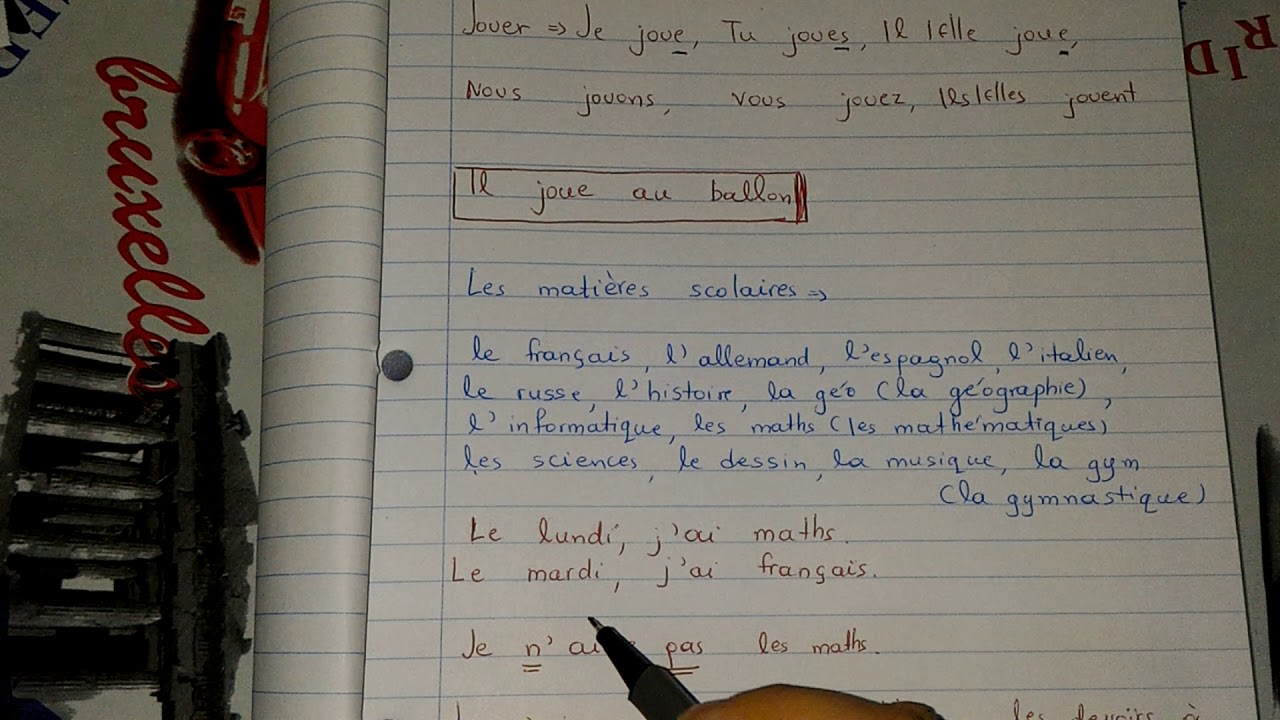 Jouer => Je joue, Tu joues, Il / Elle joue,
Nous jouons, vous jouez, Ils/Elles jouent
Il joue au ballon
Les matières scolaires =>
le français, l'allemand, l'espagnol, l'italien,
le russe, l'histoire, la géo (la géographie),
l'informatique, les maths (les mathématiques)
les sciences, le dessin, la musique, la gym
(la gymnastique)
Le lundi, j'ai maths.
Le mardi, j'ai français.
Je n' pas les maths.
les devoirs à
bruxelles